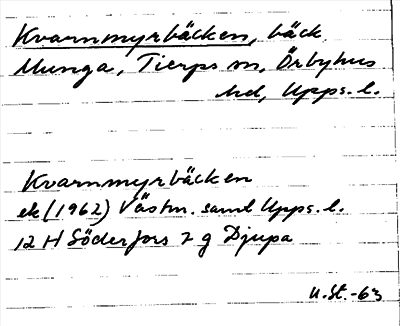 Kvarnmyrbäcken, bäck
Munga, Tierps sn, Örbyhus
hd, Upps. l.
Kvarnmyrbäcken
ek (1962) Västm. samt Upps. l.
12 H Söderfors 7 g Djupa
U.St.-63